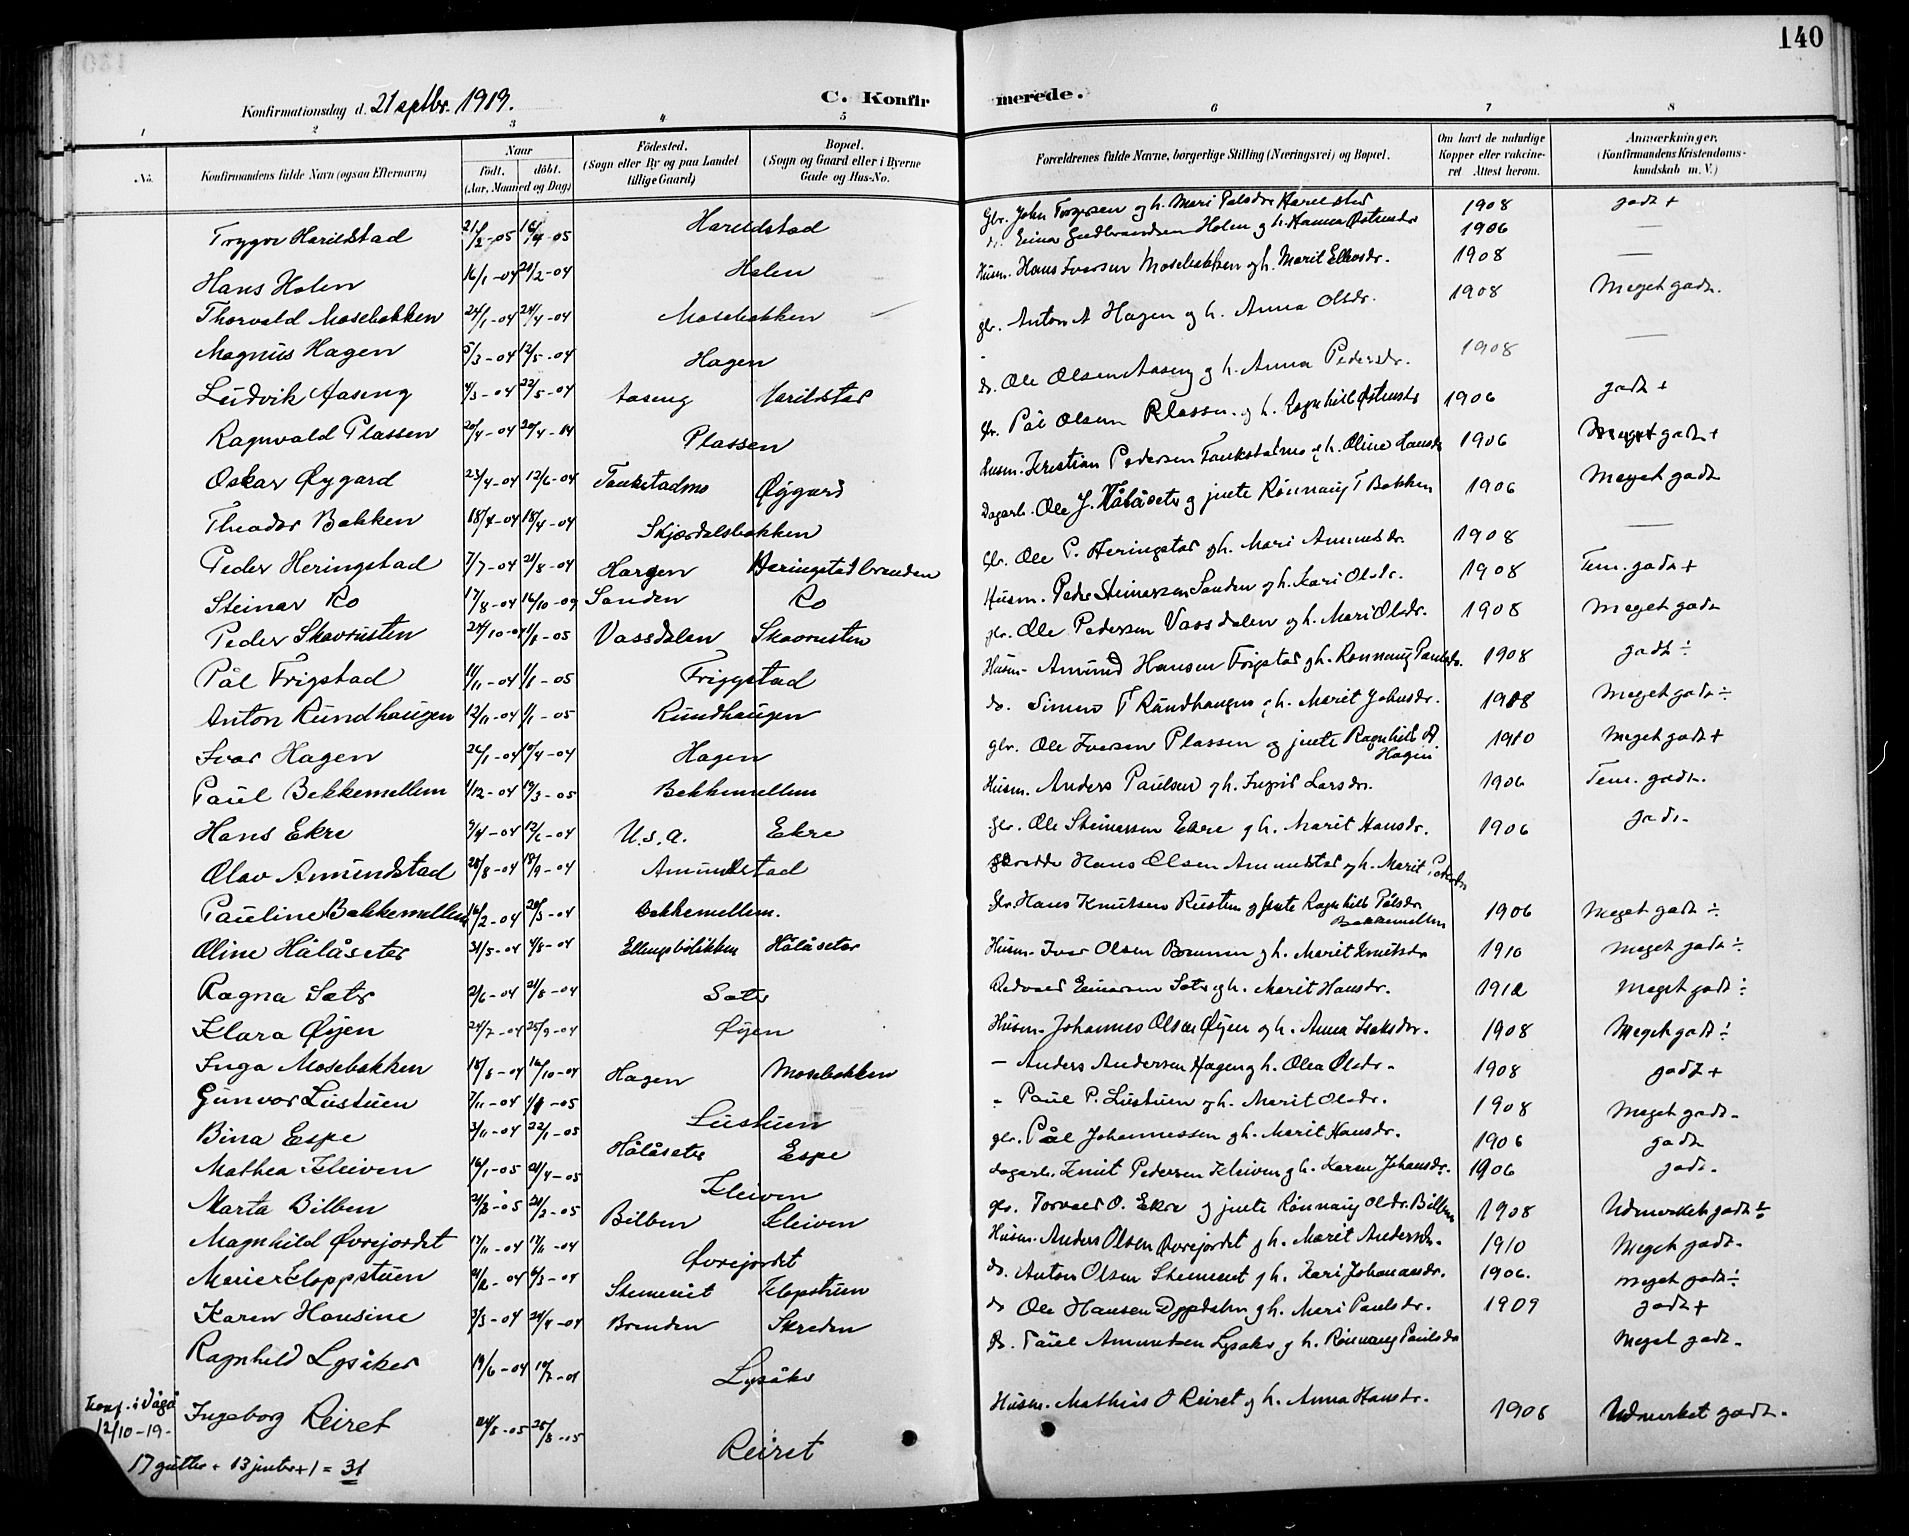 140
Konfirmationsdag d. 21 septbr. 1919.
C. Konfirmerede.
1 2 3 4 5 6 7 8
No.
Konfirmandens fulde Navn (ogsaa Efternavn)
Naar
født. døbt.
(Aar, Maaned og Dag)
Fødested.
(Sogn eller By og paa Landet
tillige Gaard)
Bopæl.
(Sogn og Gaard eller i Byerne
Gade og Hus-No.
Forældrenes fulde Navne, borgerlige Stilling (Næringsvei) og Bopæl.
Om havt de naturlige
Kopper eller vakcine-
ret Attest herom.
Anmærkninger,
(Konfirmandens Kristendoms-
kundskab m. V.)
Trygve Harildstad 21/2-05 16/4-05 Harildstad Gbr. John Torgersen og h. Mari Palsdr Harildstad 1908 godt +
Hans Holen 16/1-04 21/2-04 Holen d. Einar Gudbrandsen Holen og h. Hanna Østensdr 1906 —
Thorvald Mosebakken 24/1-04 24/4-04 Mosebakken Husm. Hans Iversen Mosebakken og h. Marit Ellevsdr. 1908 —
Magnus Hagen 5/3-04 12/5-04 Hagen gbr. Anton A Hagen og h. Anna Olsdr. 1908 Meget godt.
Ludvik Aaseng 4/3-04 22/5-04 Aaseng Harildstad do. Ole Olsen Aaseng og h. Anna Pedersdr. 1908 —
Ragnvald Plassen 20/4-04 20/4-14 Plassen gbr. Pål Olsen Plassen og h. Ragnhild Østensdr 1906 godt +
Oskar Øygard 23/4-04 12/6-04 Taukstadmo Øygard Husm. Kristian Pedersen Taukstadmo og h. Oline Hansdr 1906 Meget godt +
Theodor Bakken 18/4-04 18/4-04 Skjærdalsbakken Dagarb. Ole J. Hålåseter og jente Rønnaug T Bakken 1906 Meget godt
Peder Heringstad 7/7-04 21/8-04 Hargen Heringstadbrenden Gbr. Ole P. Heringstad og h. Mari Amundsdr. 1908 —
Steinar Ro 17/8-04 16/10-09 Sanden Ro Husm. Peder Steinarsen Sanden og h. Kari Olsdr. 1908 Tem. godt +
Peder Skavrusten 24/10-04 1/1-05 Vassdalen Skavrusten gbr. Ole Pedersen Vassdalen og h. Mari Olsdr. 1908 Meget godt
Pål Frigstad 11/11-04 1/1-05 Friggstad Husm. Amund Hansen Frigstad og h. Rønnaug Paulsdr. 1908 godt ÷
Anton Rundhaugen 12/11-04 1/1-05 Rundhaugen do. Simen T Rundhaugen og h. Marit Johnsdr. 1918 Meget godt ÷
Ivar Hagen 26/1-04 10/4-04 Hagen gbr. Ole Iversen Plassen og jente Ragnhild A Hagen 1910 Meget godt +
Paul Bekkemellem 1/12-04 19/3-05 Bekkemellem Husm. Anders Paulsen og h. Ingrid Larsdr. 1906 Tem. godt.
Hans Ekre 9/4-04 12/6-04 U.S.A. Ekre gbr. Ole Steinarsen Ekre og h. Marit Hansdr. 1906 godt.
Olav Amundstad 28/8-04 18/9-04 Amundstad Skredder Hans Olsen Amundstad og h. Marit Pedersdr
Pauline Bekkemellem 16/2-04 20/3-04 Bekkemellem. Gbr. Hans Knutsen Rusten og jente Ragnhild Pålsdr Bekkemellem 1906 Meget godt ÷
Oline Hålåseter 31/5-04 7/8-04 Ellingsbølikken Hålåseter Husm. Ivar Olsen Brunen og h. Marit Knutsdr 1910 Meget godt ÷
Ragna Sætr 2/6-04 21/8-04 Sætr Redvald Einarsen Sætr og h. Marit Hansdr. 1912 Meget godt ÷
Klara Øyen 24/7-04 25/9-04 Øyen Husm. Johannes Olsen Øyen og h. Anna Isaksdr. 1908 Meget godt ÷
Inga Mosebakken 18/8-04 16/10-04 Hagen Mosebakken — Anders Andersen Hagen og h. Olea Olsdr. 1908 godt +
Gunvor Lustuen 7/11-04 1/1-05 Lustuen - Paul P. Lustuen og h. Marit Olsdr. 1908 Meget godt.
Bina Espe 3/11-04 22/1-05 Hålåseter Espe gbr. Pål Johannessen og h. Marit Hansdr. 1906 godt
Mathea Kleiven 16/1-05 24/4-05 Kleiven dagarb. Knut Pedersen Kleiven og h. Karen Johansdr. 1906 godt.
Marta Bilben 21/2-05 21/3-05 Bilben Kleiven gbr. Torvald O. Ekre og jente Rønnaug Olsdr. Bilben 1908 Udmerket godt ÷
Magnhild Øvrejordet 17/11-04 17/11-04 Øvrejordet Husm. Anders Olsen Øvrejordet og h. Marit Andersdr. 1910 Meget godt.
Marie Kloppstuen 21/2-04 6/3-04 Kloppstuen do. Anton Olsen og h. Kari Johannesdr. 1906. Meget godt ÷
Karen Hansine 3/3-04 24/4-04 Brenden Skreden do Ole Hansen og h. Mari Paulsdr. 1909 godt +
Ragnhild Lysåker 19/6-04 Lysåkr do. Paul Amundsen Lysaker og h. Rønnaug Paulsdr Meget godt.
Konf. i Vågå
12/10-19. Ingeborg Reiret 24/5-05 25/8-05 Reiret Husm. Mathias O Reiret og h. Anna Hansdr. 1908 Udmerket godt.
17 gutter + 13 jenter + 1 = 31